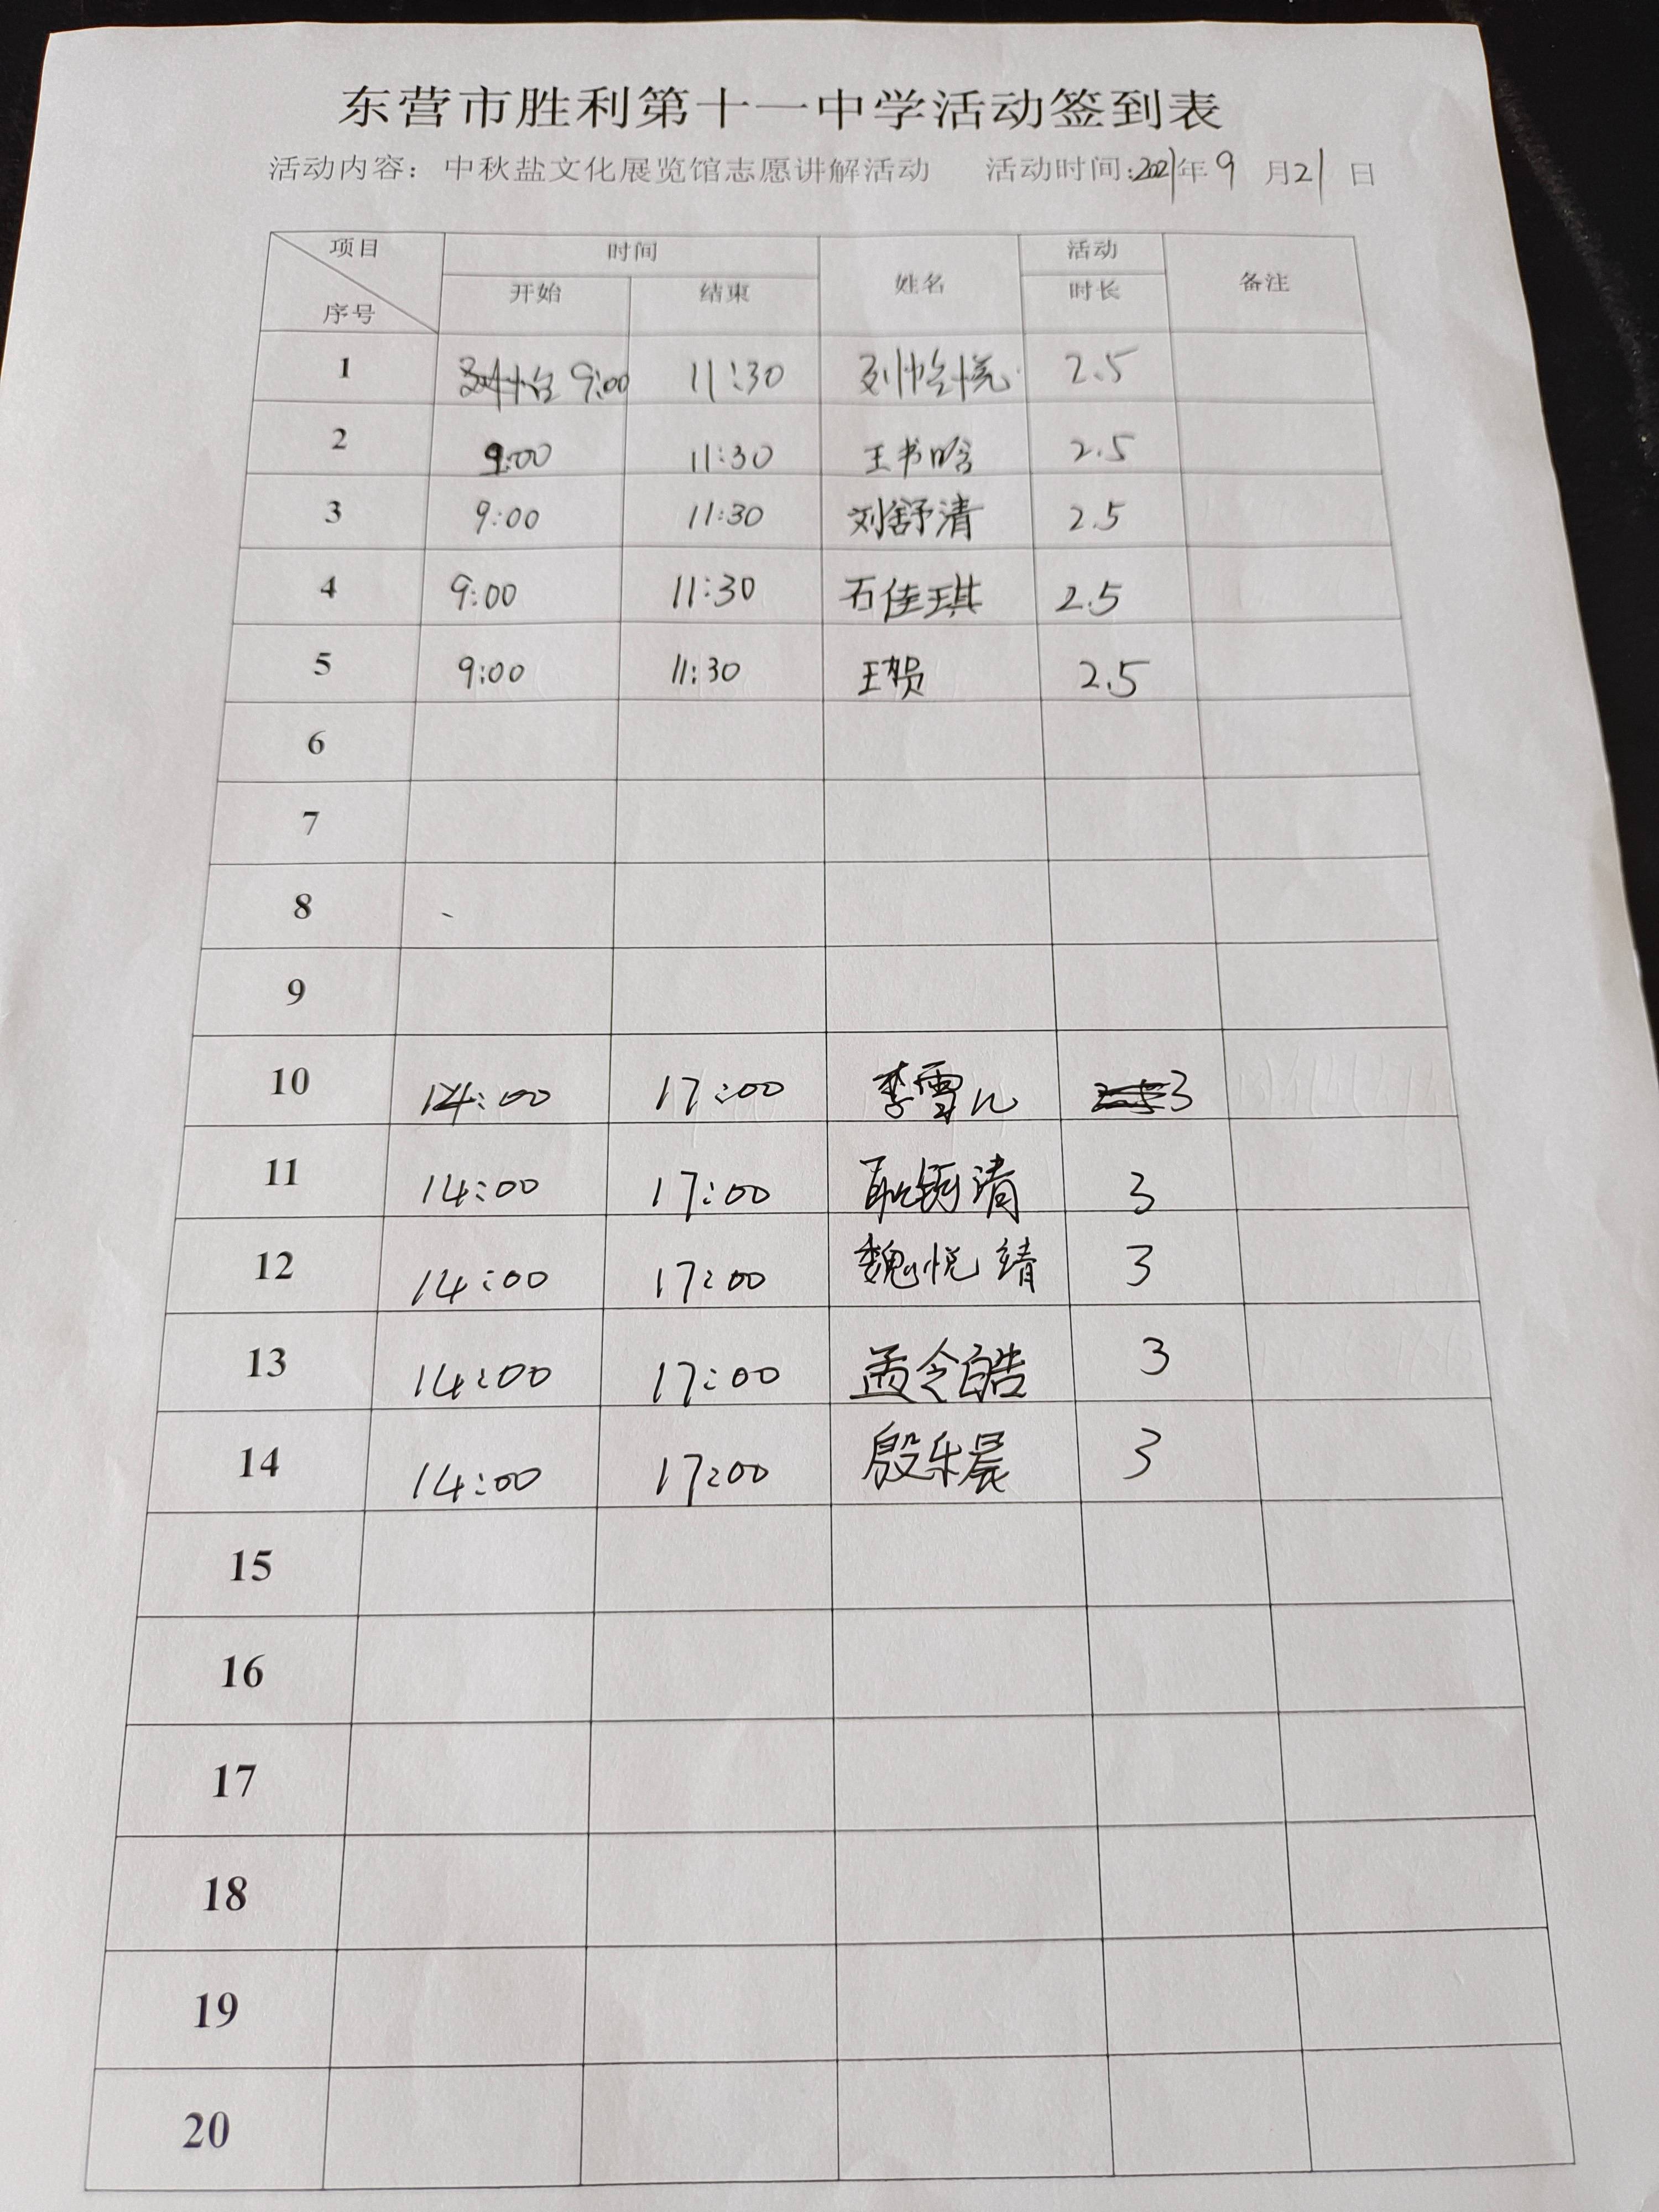 东营市胜利第十一中学活动签到表
活动内容：中秋盐文化展览馆志愿讲解活动 活动时间:2021年9月21日
项目 时间 姓名 活动 备注
序号 开始 结束 时长
1 9:00 11:30 刘怡悦 2.5
2 9:00 11:30 王书晗 2.5
3 9:00 11:30 刘舒清 2.5
4 9:00 11:30 石佳琪 2.5
5 9:00 11:30 王贺 2.5
6
7
8
9
10 14:00 17:00 李雪儿 3
11 14:00 17:00 3
12 14:00 17:00 魏悦靖 3
13 14:00 17:00 孟令皓 3
14 14:00 17:00 殷乐晨 3
15
16
17
18
19
20